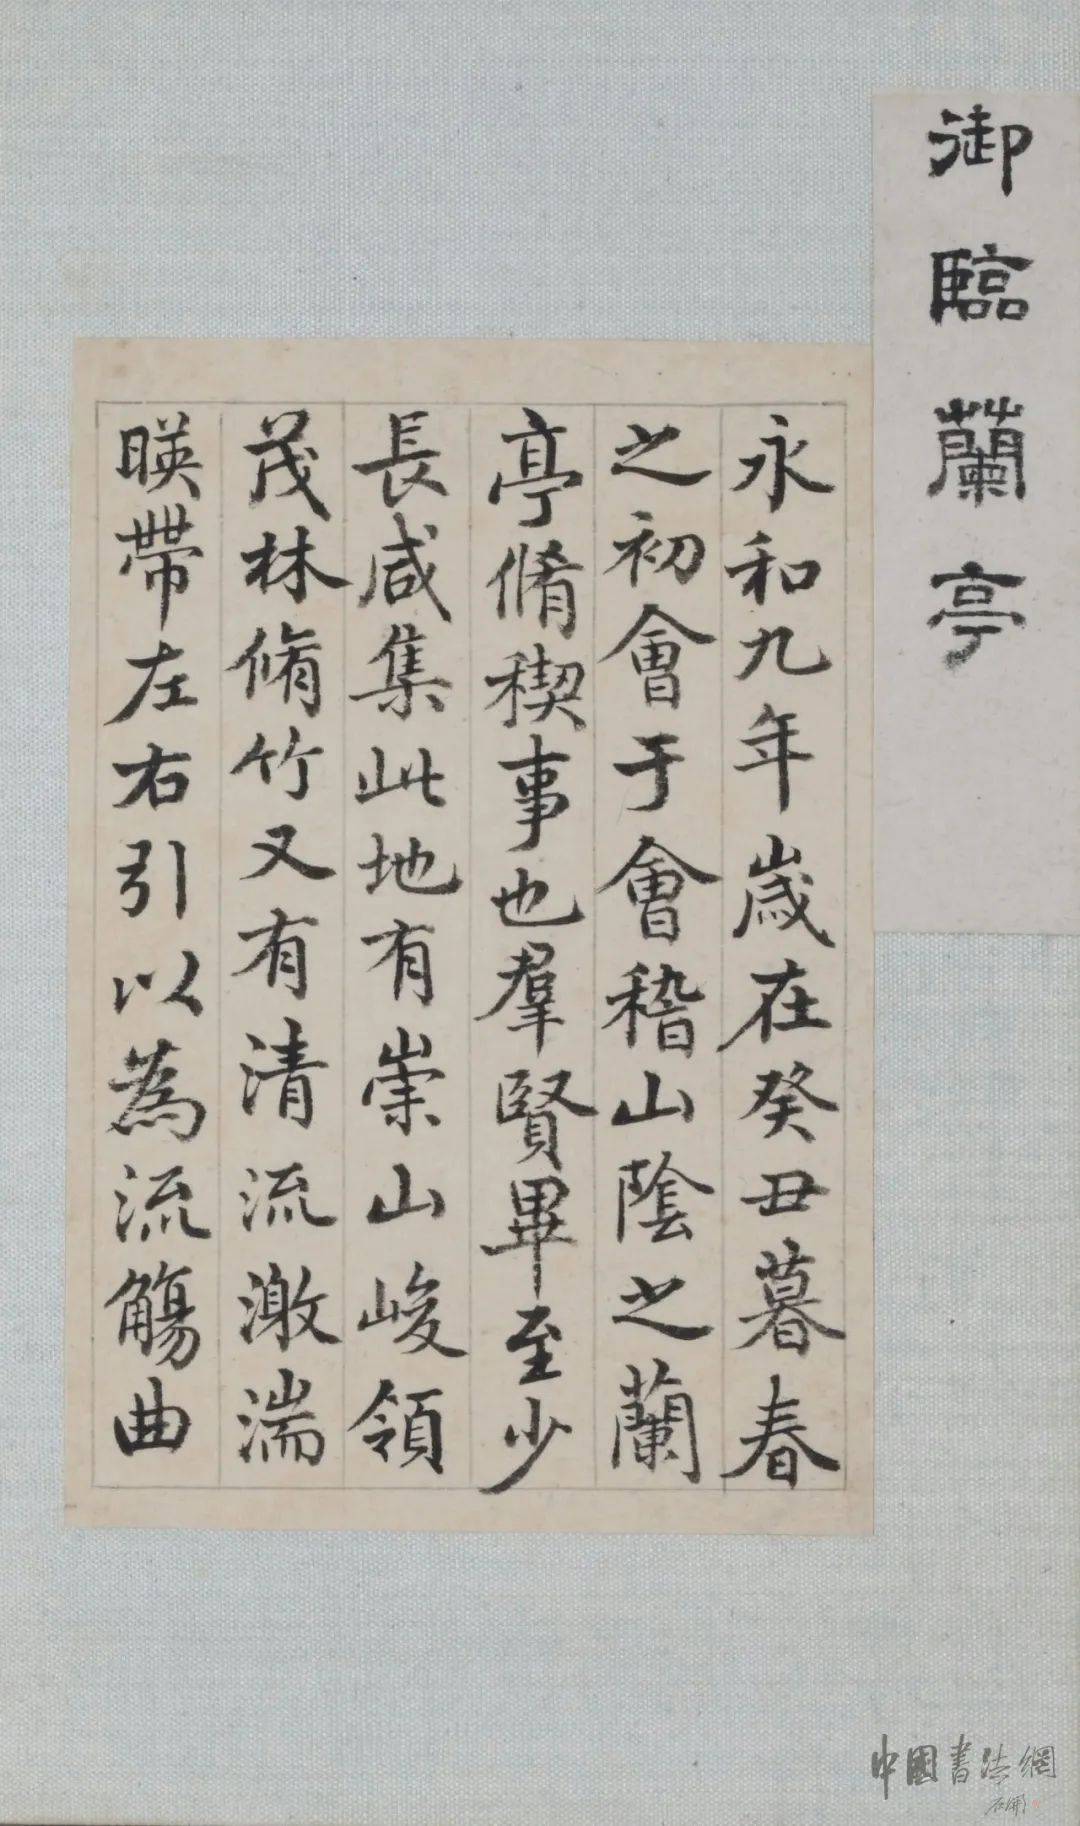 御臨蘭亭
永和九年歲在癸丑暮春
之初會于會稽山陰之蘭
亭脩稧事也羣賢畢至少
長咸集此地有崇山峻領
茂林脩竹又有清流激湍
暎帶左右引以為流觴曲
中國書法網